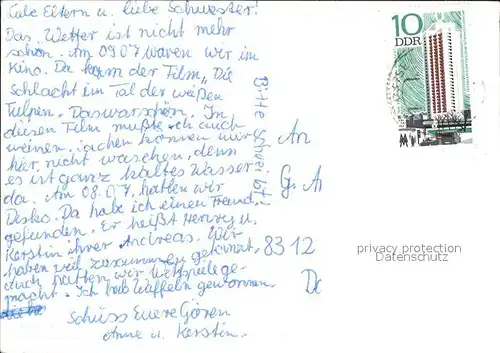 Liebe Eltern u. liebe Schwester!
Das Wetter ist nicht mehr
schön. Am 09.07 waren wir im
Kino. Da kam der Film, Die
Schlacht im Tal der weißen
Tulpen. Das war schön. In
diesen Film mußte ich auch
weinen. Sachen können wir
hier nicht waschen, denn
es ist ganz kaltes Wasser
da. Am 08.07. hatten wir
Disko. Da habe ich einen Freund
gefunden. Er heißt Henry u.
Kerstin ihrer Andreas. Wir
haben viel zusammen getanzt.
Auch hatten wir
macht. Ich hab Waffeln gewonnen.
Schüss Euere Gören
Anne u. Kerstin.
Bitte schreibt
An
G. A
8312
10
DDR
privacy protection
Datenschutz